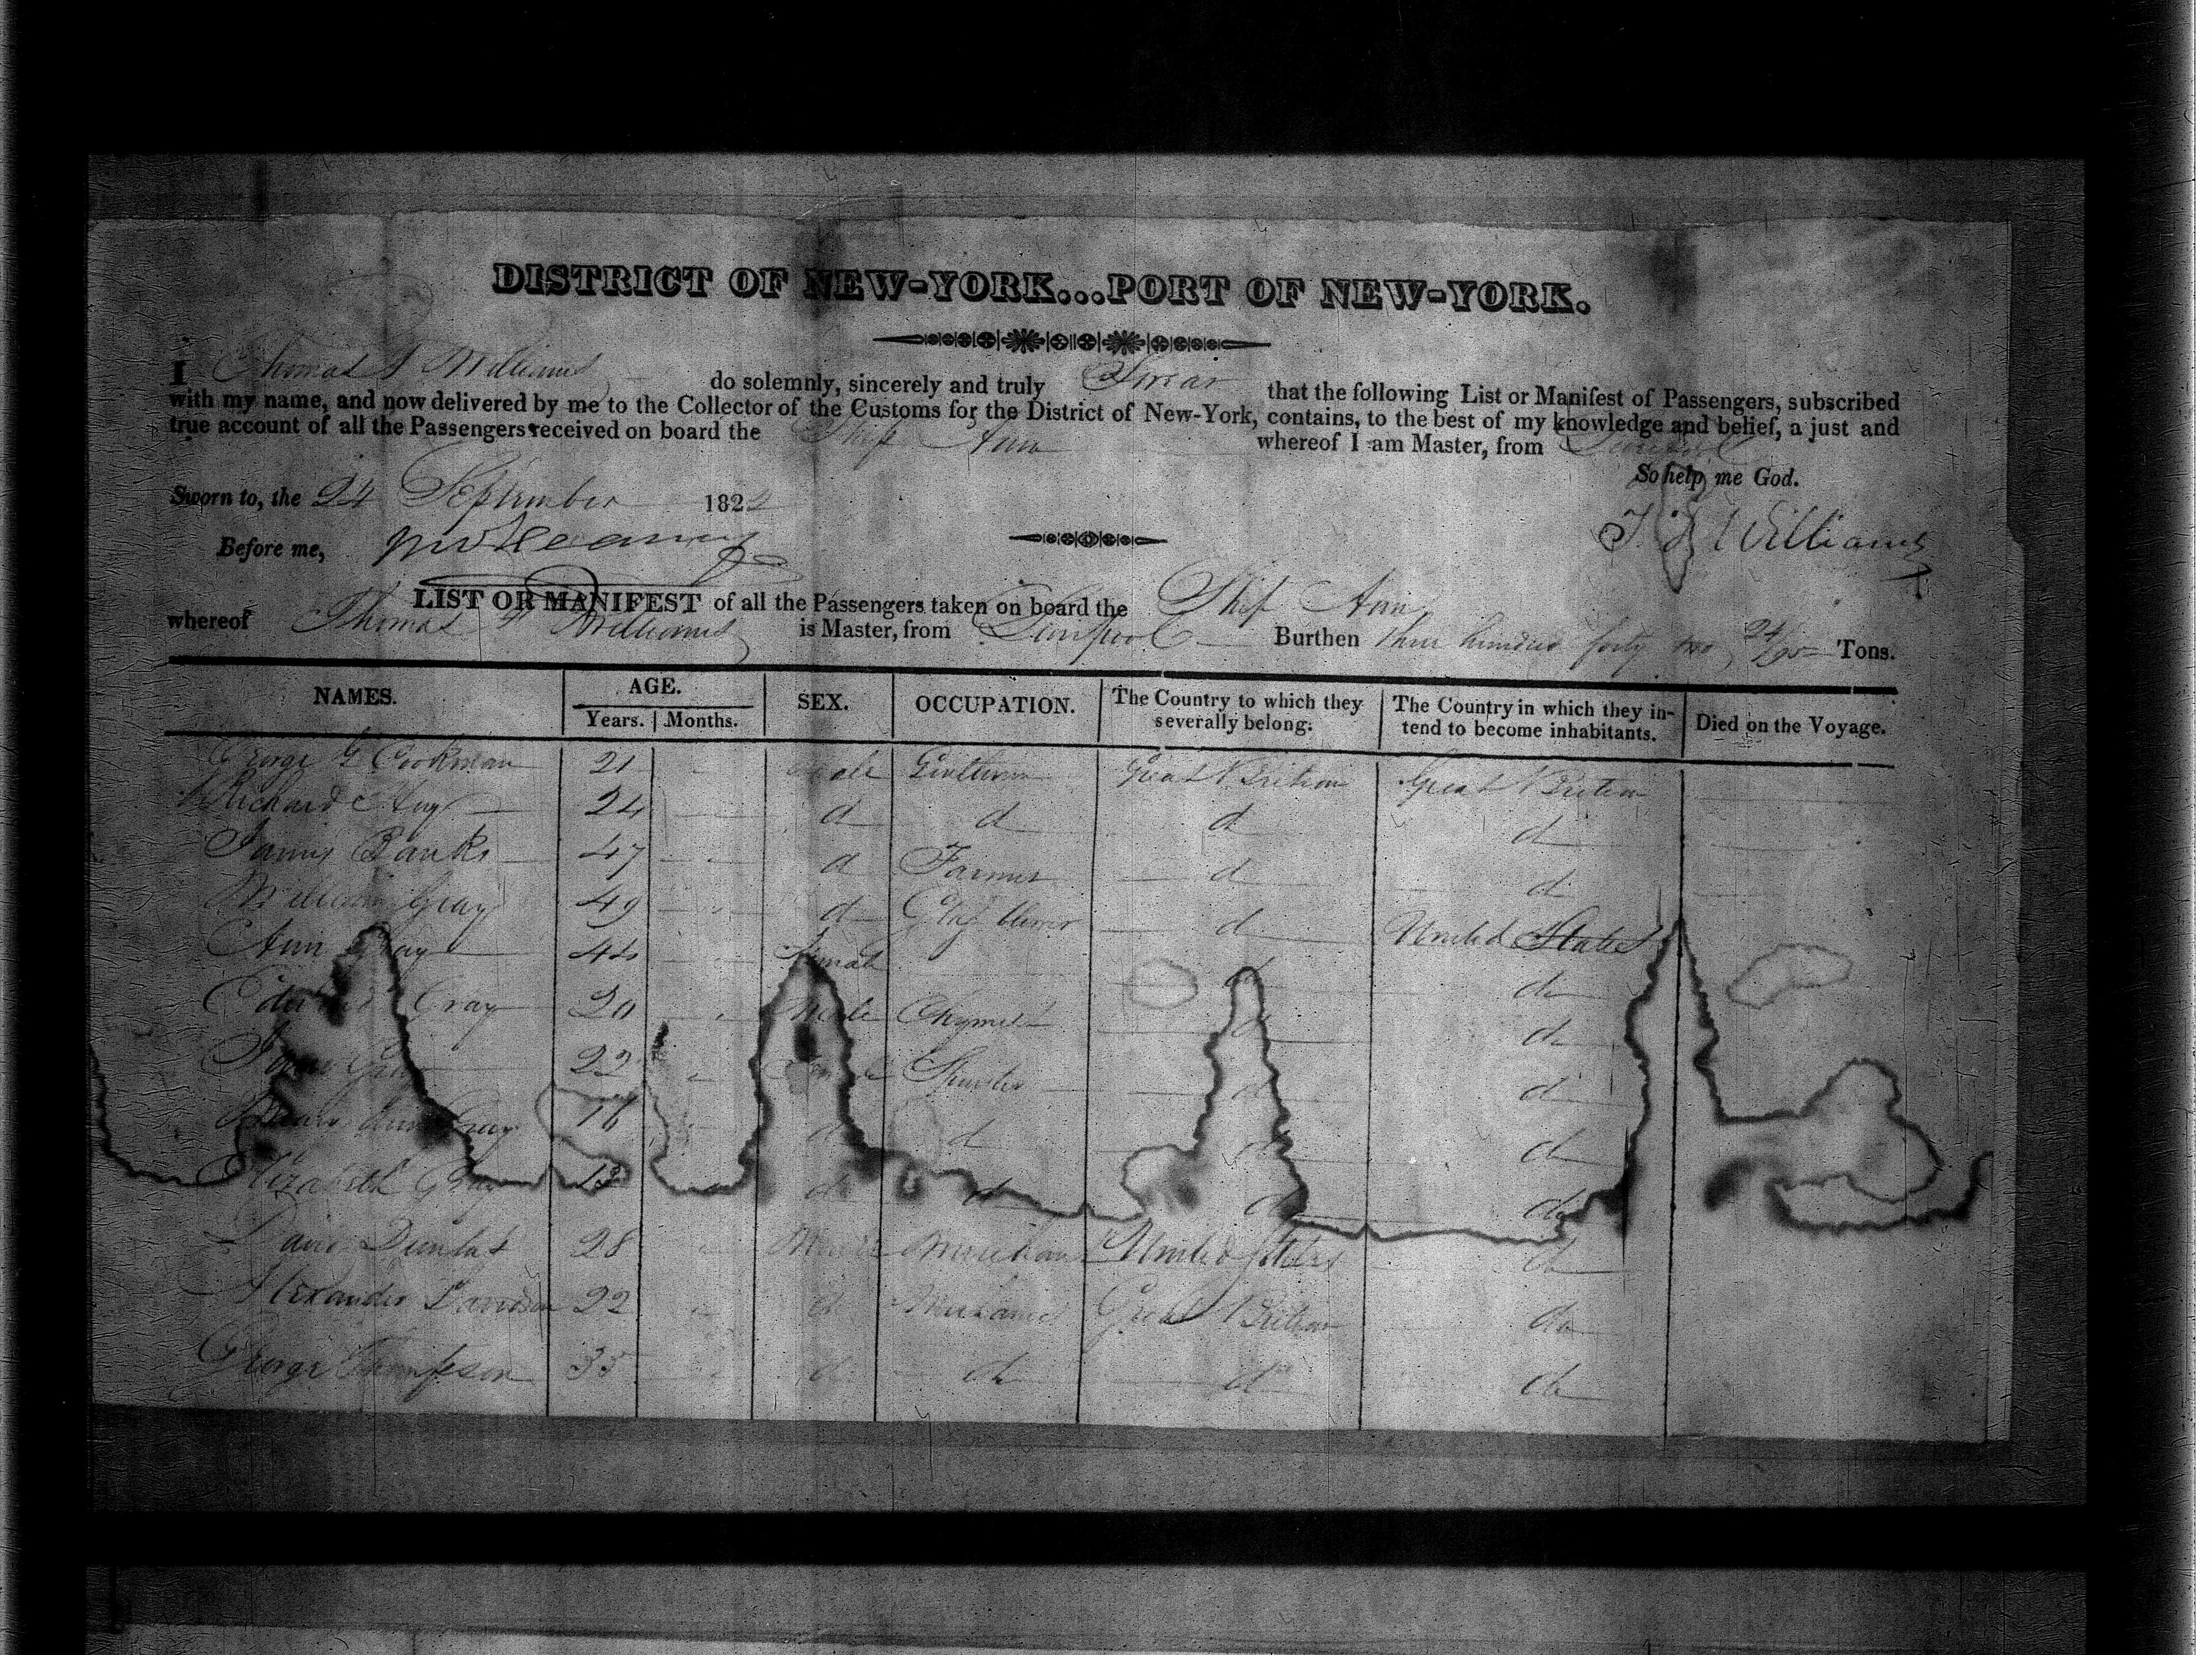 DISTRICT OF NEW-YORK...PORT OF NEW-YORK.
I Thomas S Williams do solemnly, sincerely and truly Swear that the following List or Manifest of Passengers, subscribed
with my name, and now delivered by me to the Collector of the Customs for the District of New-York, contains, to the best of my knowledge and belief, a just and
true account of all the Passengers received on board the Ship Ann whereof I am Master, from Liverpool
So help me God.
Sworn to, the 24 September 182
T. S Williams
Before me,
LIST OR MANIFEST of all the Passengers taken on board the Ship Ann
whereof Thomas Williams is Master, from Liverpool Burthen Three hundred forty two 24/95 Tons.
NAMES. AGE. SEX. OCCUPATION. The Country to which they severally belong. The Country in which they intend to become inhabitants. Died on the Voyage.
Years. Months.
George G Cookman 21 Male Gentleman Great Britian Great Britian
Richard 24 d d d d
James Banks 47 d Farmer d d
William Gray 49 d d United States
Ann Gray 44 Female d do
Gray 20 Male Chymist d d
Gray 22 Female Spinster d d
Ann Gray 16 d d d do
Elizabeth Gray 13 d d d do
David Dunlap 28 Male Merchant United States do
Alexander Davidson 22 d Mechanic Great Britian do
George Thompson 35 d do d do